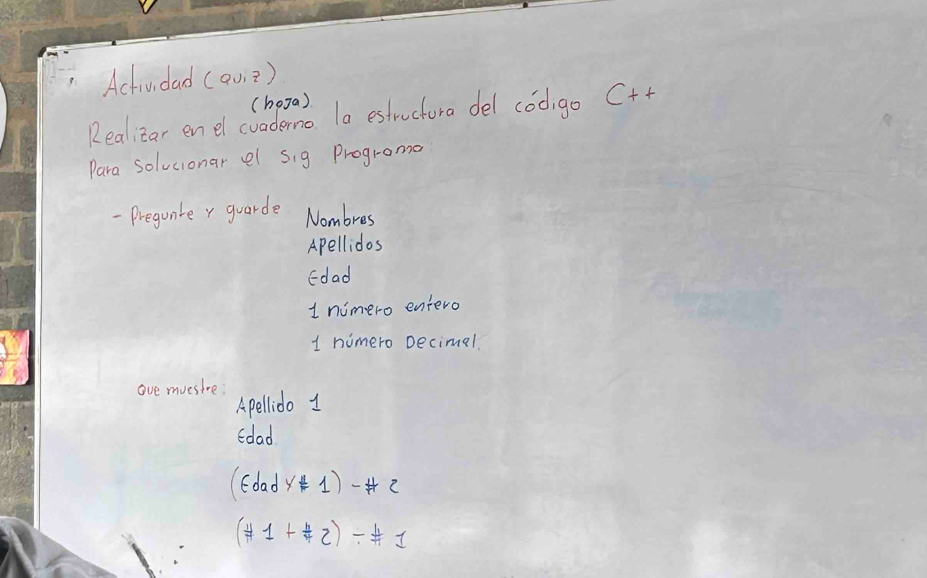 Actividad (quiz)
(hoja)
Realizar en el cuaderno la estructura del código C++
Para solucionar el sig Programa:
- Pregunte y guarde Nombres
Apellidos
Edad
1 número entero
1 número Decimal.
Que muestre:
Apellido 1
Edad
(Edad * # 1) - # 2
(# 1 + # 2) ÷ # 1